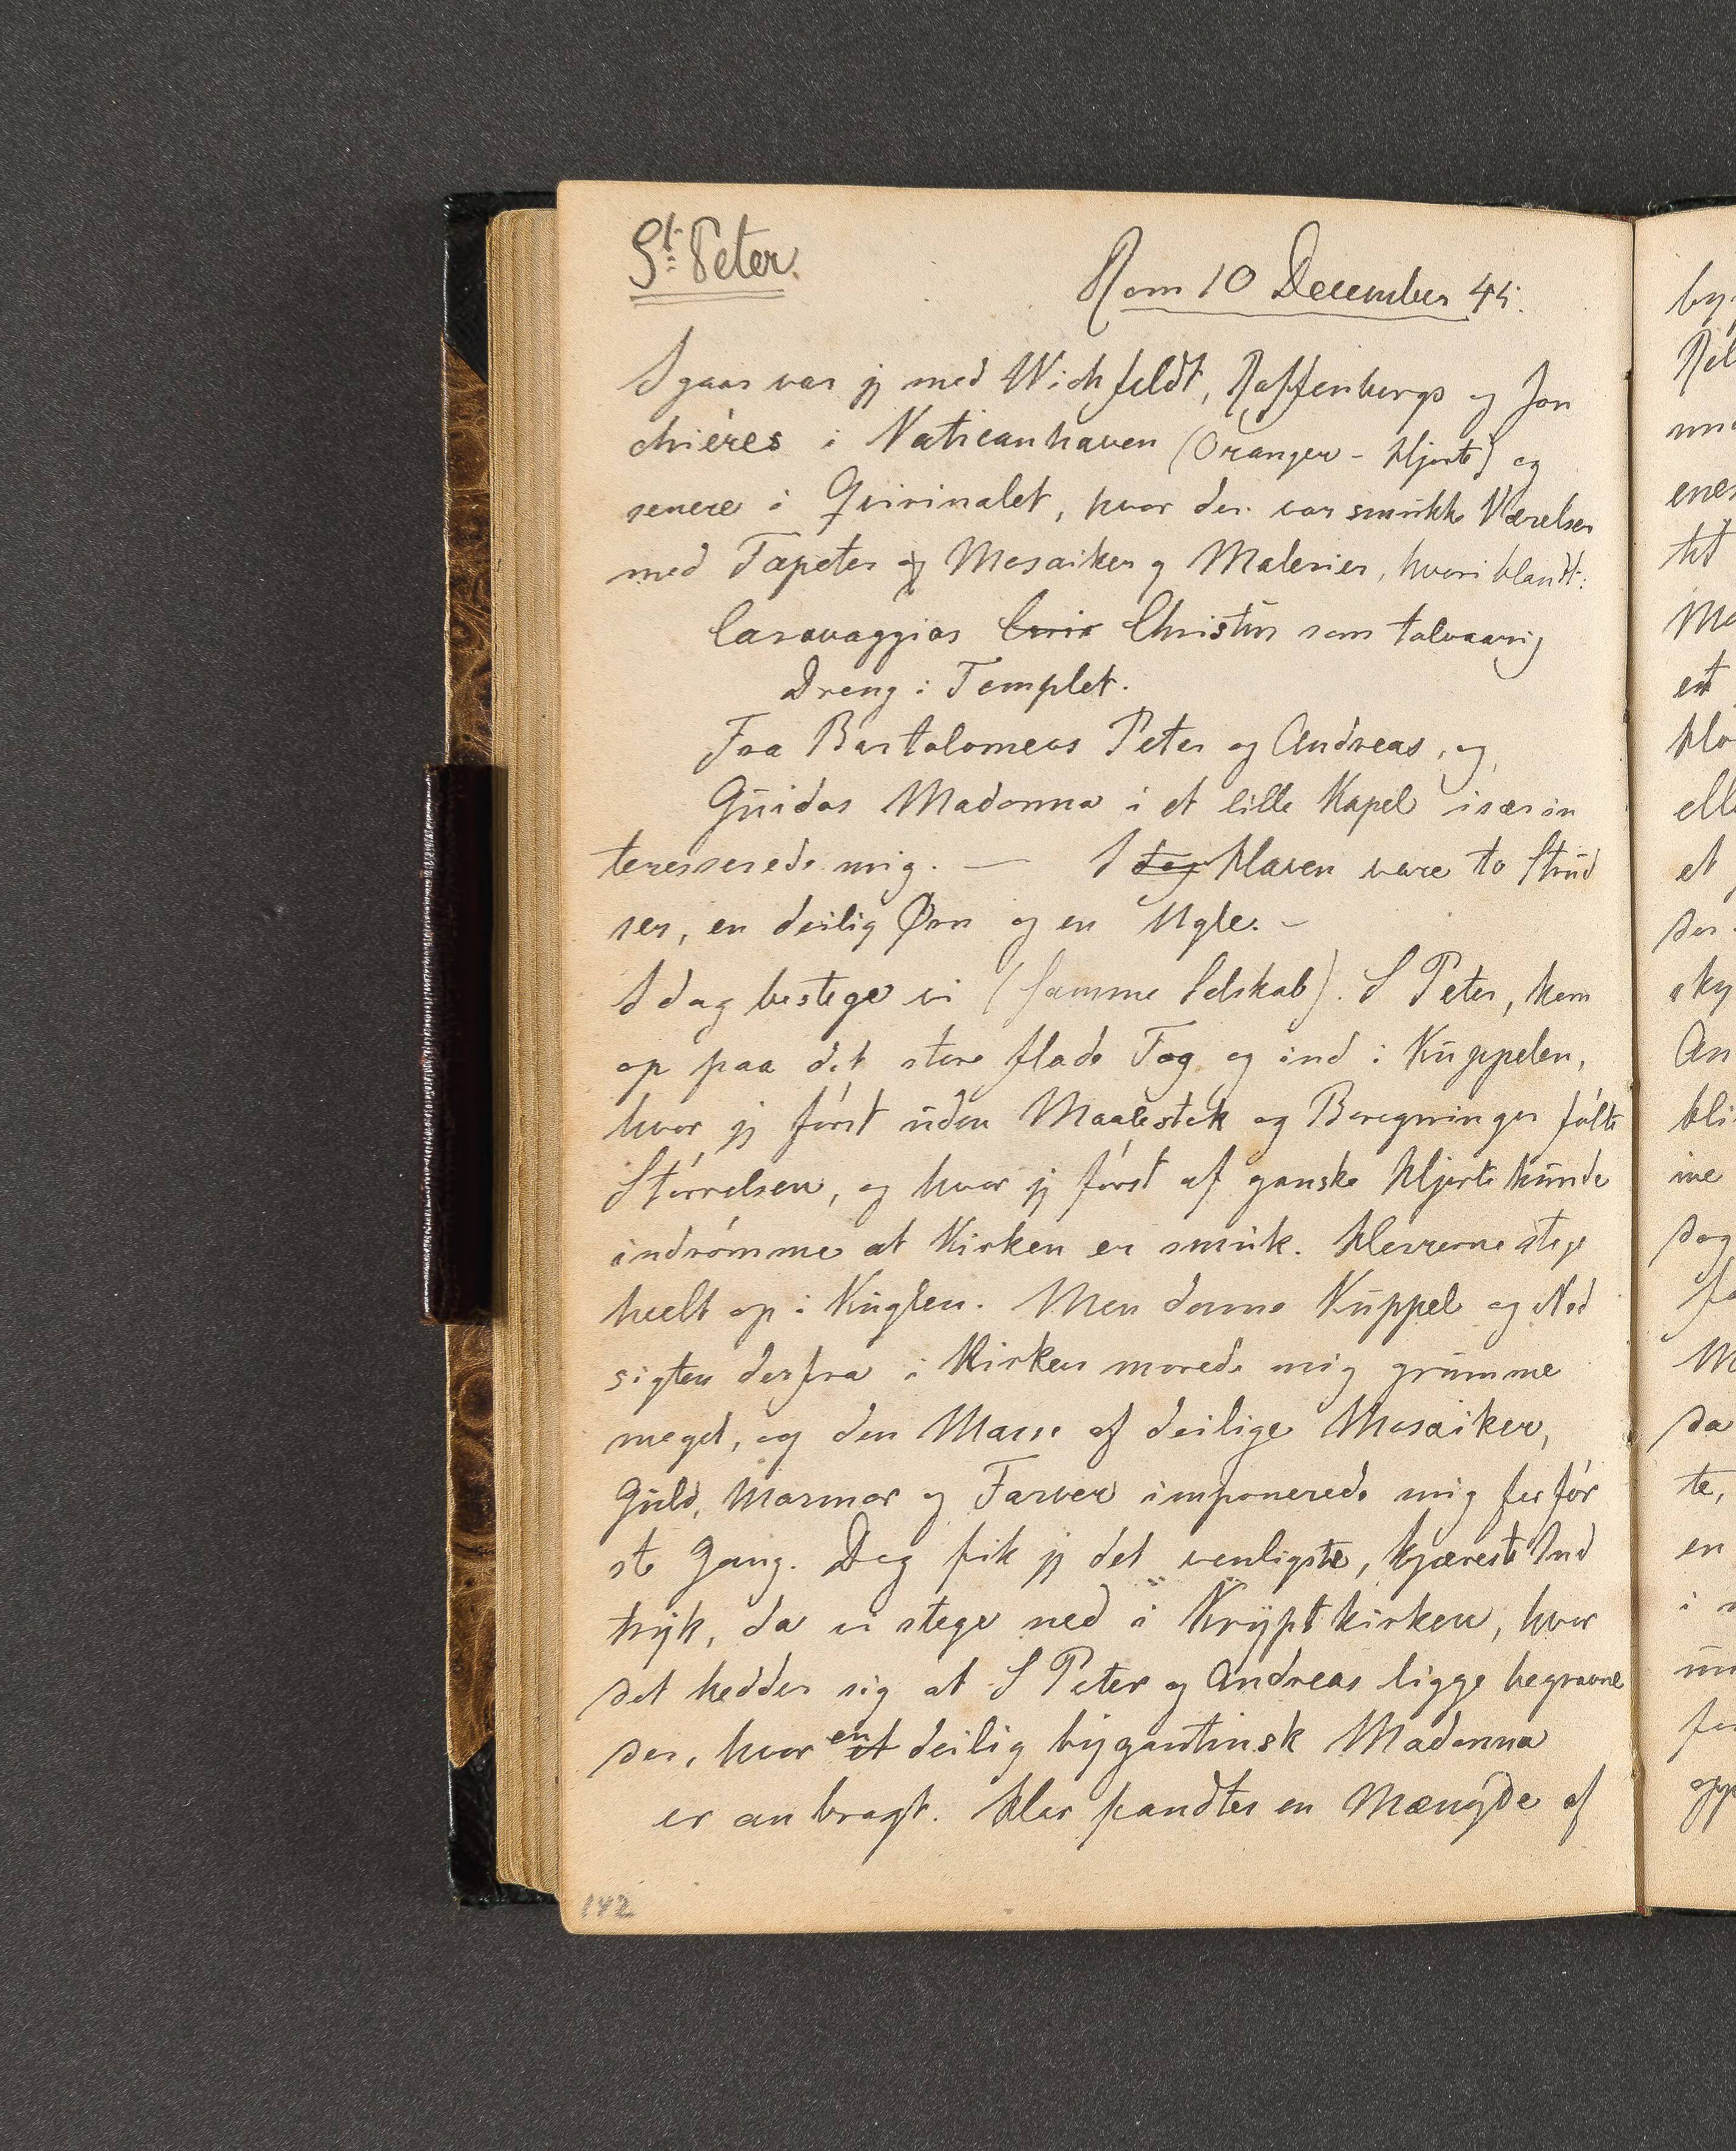 St. Peter.
Rom 10 December 45.
I gaar var jg med Wichfeldt, Raffenbergs og Jon
chiéres i Vaticanhaven (Oranger - Hjorte) og
senere i Qvirinalet, hvor der var smukke Værelser
med Tapeter og Mosaiker og Malerier, hvoriblandt:
Caravaggios Cris Christus som tolvaarig
Dreng i Templet.
Fra Bartolomeos Peter og Andreas, og
Guidos Madonna i et lille Kapel især in
teresserede mig. — I dag Haven vare to Strud
ser, en deilig Ørn og en Ugle. -
I dag bestege vi (samme Selskab). S Peter, kom
op paa det store flade Tag og ind i Kuppelen,
hvor jg först uden Maalestok og Beregninger fölte
Störrelsen, og hvor jg först af ganske Hjerte kunde
indrömme at Kirken er smuk. Herrerne stege
heelt op i Kuglen. Men denne Kuppel og Ned
sigten derfra i Kirken morede mig grumme
meget, og den Masse af deilige Mosaiker,
Guld, Marmor og Farver imponerede mig for för
ste Gang. Dog fik jg det venligste, kjæreste Ind
tryk, da vi stege ned i Kryptkirken, hvor
det hedder sig at S Peter og Andreas ligge begravne
der, hvor en et deilig bÿzantinsk Madonna
er anbragt. Her fandtes en Mængde af
142
by
en
tit
Mo
et
Ho
elle
et
der
sky
An
bli
ine
dog
fo
M
da
te,
en
i
un
for
opp